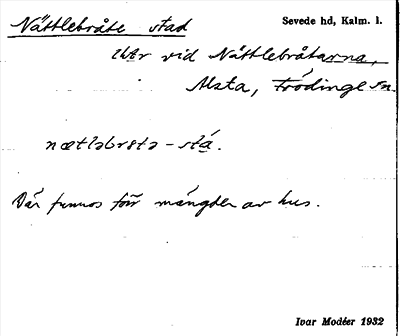 Nättlebråte stad
Sevede hd, Kalm. l.
vid Nättlebråtarna,
Alsta, Frödinge sn.
nætləbrøtə-stá.
Där funnos förr mängder av hus.
Ivar Modéer 1932